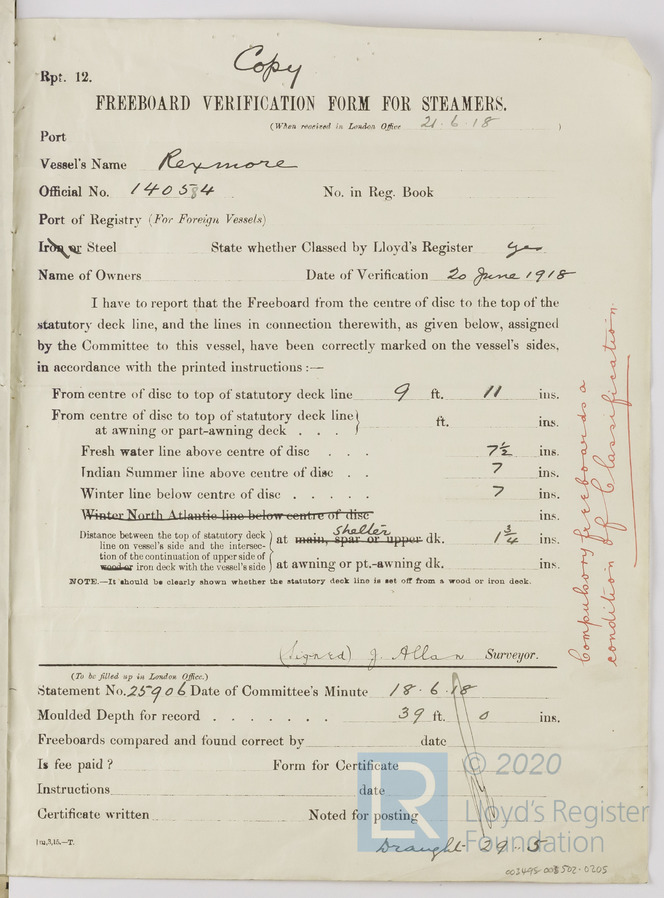 Copy
Rpt. 12.
FREEBOARD VERIFICATION FORM FOR STEAMERS.
(When received in London Office 21.6.18 )
Port
Vessel's Name Rexmore
Official No. 140584 No. in Reg. Book
Port of Registry (For Foreign Vessels)
Iron or Steel State whether Classed by Lloyd's Register yes
Name of Owners Date of Verification 20 June 1918
I have to report that the Freeboard from the centre of disc to the top of the
statutory deck line, and the lines in connection therewith, as given below, assigned
by the Committee to this vessel, have been correctly marked on the vessel's sides,
in accordance with the printed instructions :—
From centre of disc to top of statutory deck line 9 ft. 11 ins.
From centre of disc to top of statutory deck line
at awning or part-awning deck . . . ft. ins.
Fresh water line above centre of disc . . . 7½ ins.
Indian Summer line above centre of disc . . 7 ins.
Winter line below centre of disc . . . . . 7 ins.
Winter North Atlantic line below centre of disc ins.
Distance between the top of statutory deck
line on vessel's side and the intersec-
tion of the continuation of upper side of
wood or iron deck with the vessel's side
shelter
at main, spar or upper dk. 1¾ ins.
at awning or pt.-awning dk. ins.
NOTE.—It should be clearly shown whether the statutory deck line is set off from a wood or iron deck.
Compulsory freeboards a
condition of Classification.
(Signed) J. Allan Surveyor.
(To be filled up in London Office.)
Statement No. 25906 Date of Committee's Minute 18.6.18
Moulded Depth for record . . . . . . . 39 ft. 0 ins.
Freeboards compared and found correct by date
Is fee paid ? Form for Certificate
Instructions date
Certificate written Noted for posting
Draught 29.5
1m,3,15.—T.
LR
© 2020
Lloyd's Register
Foundation
003495-003502-0205